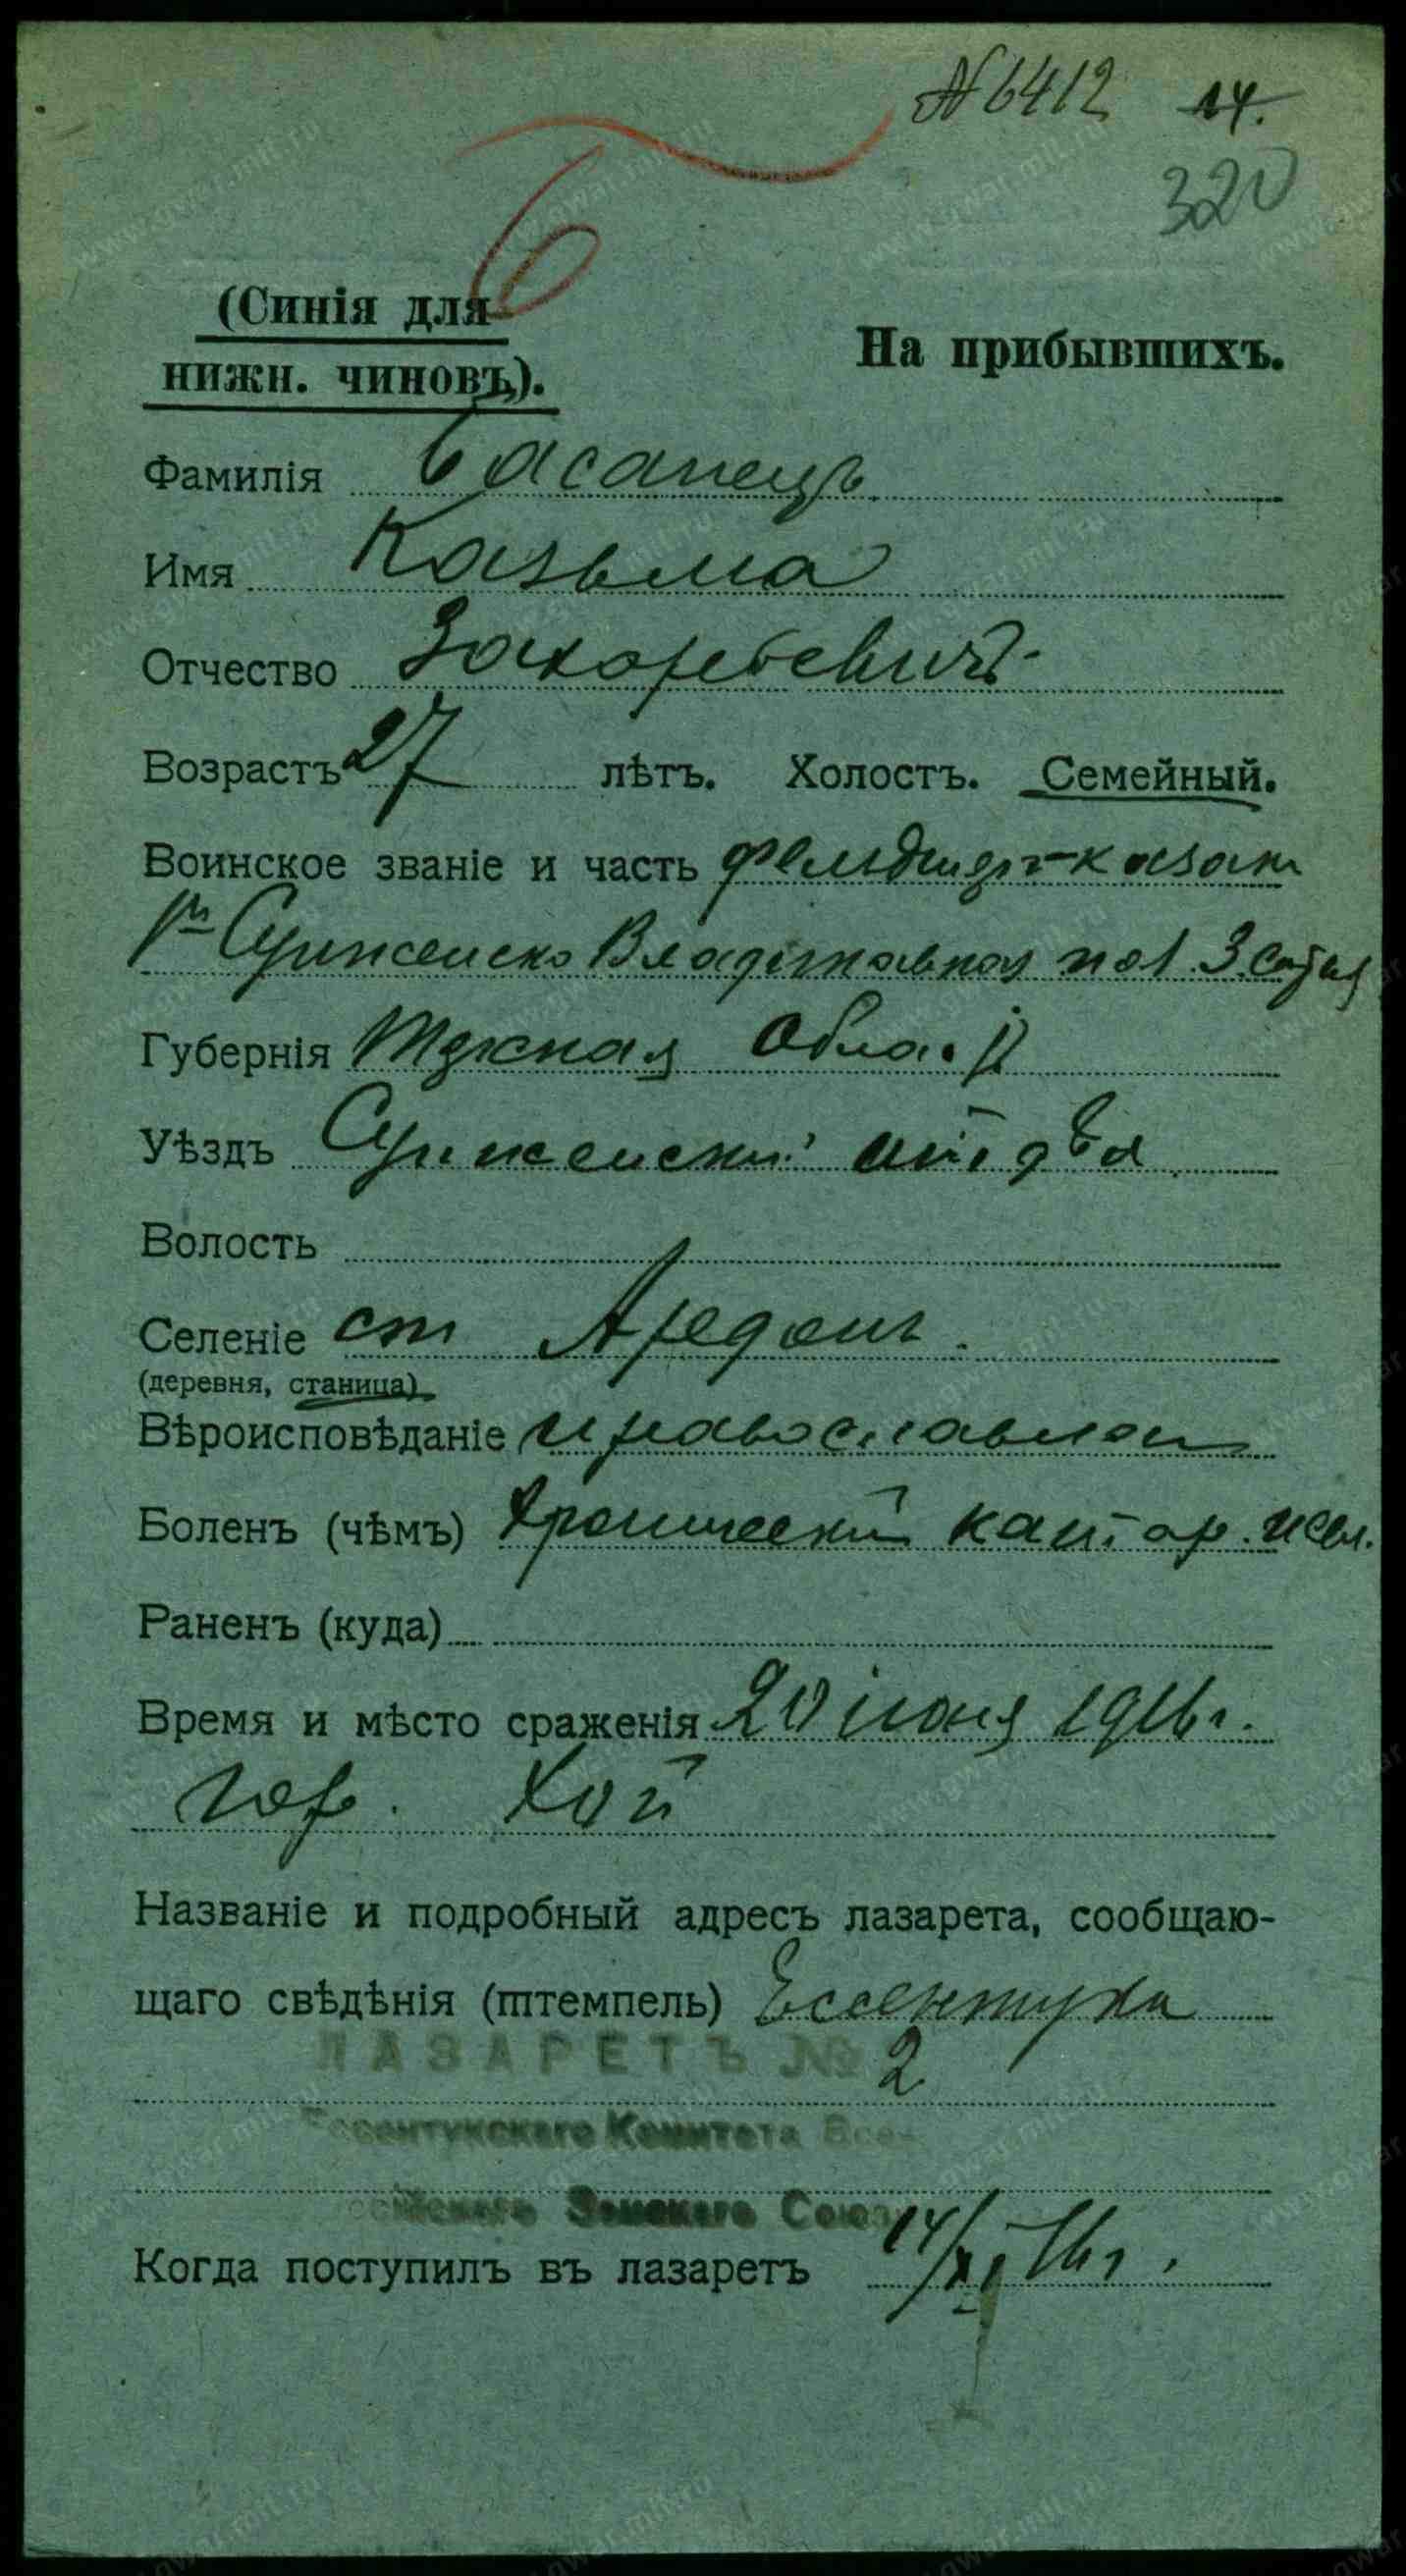 № 6412 14.
320
б
(Синія для
нижн. чиновъ).
На прибывшихъ.
Фамилія Басанецъ
Имя Казьма
Отчество Захорьевичъ
Возрастъ 27 лѣтъ. Холостъ. Семейный.
Воинское званіе и часть фельдшеръ-казакъ
1й Сунженско Владикавказ пол 3 сотня
Губернія Терская Облас
Уѣздъ Сунженскій отдѣл
Волость
Селеніе ст Ардонъ
(деревня, станица)
Вѣроисповѣданіе православнои
Боленъ (чѣмъ) Хроническій катар. жел.
Раненъ (куда)
Время и мѣсто сраженія 20 іюня 1916 г.
гор. Хой
Названіе и подробный адресъ лазарета, сообщаю-
щаго свѣдѣнія (штемпель) Ессентуки
ЛАЗАРЕТЪ № 2
Ессентукскаго Комитета Все-
россійскаго Земскаго Союза
Когда поступилъ въ лазаретъ 14/XI 16 г.